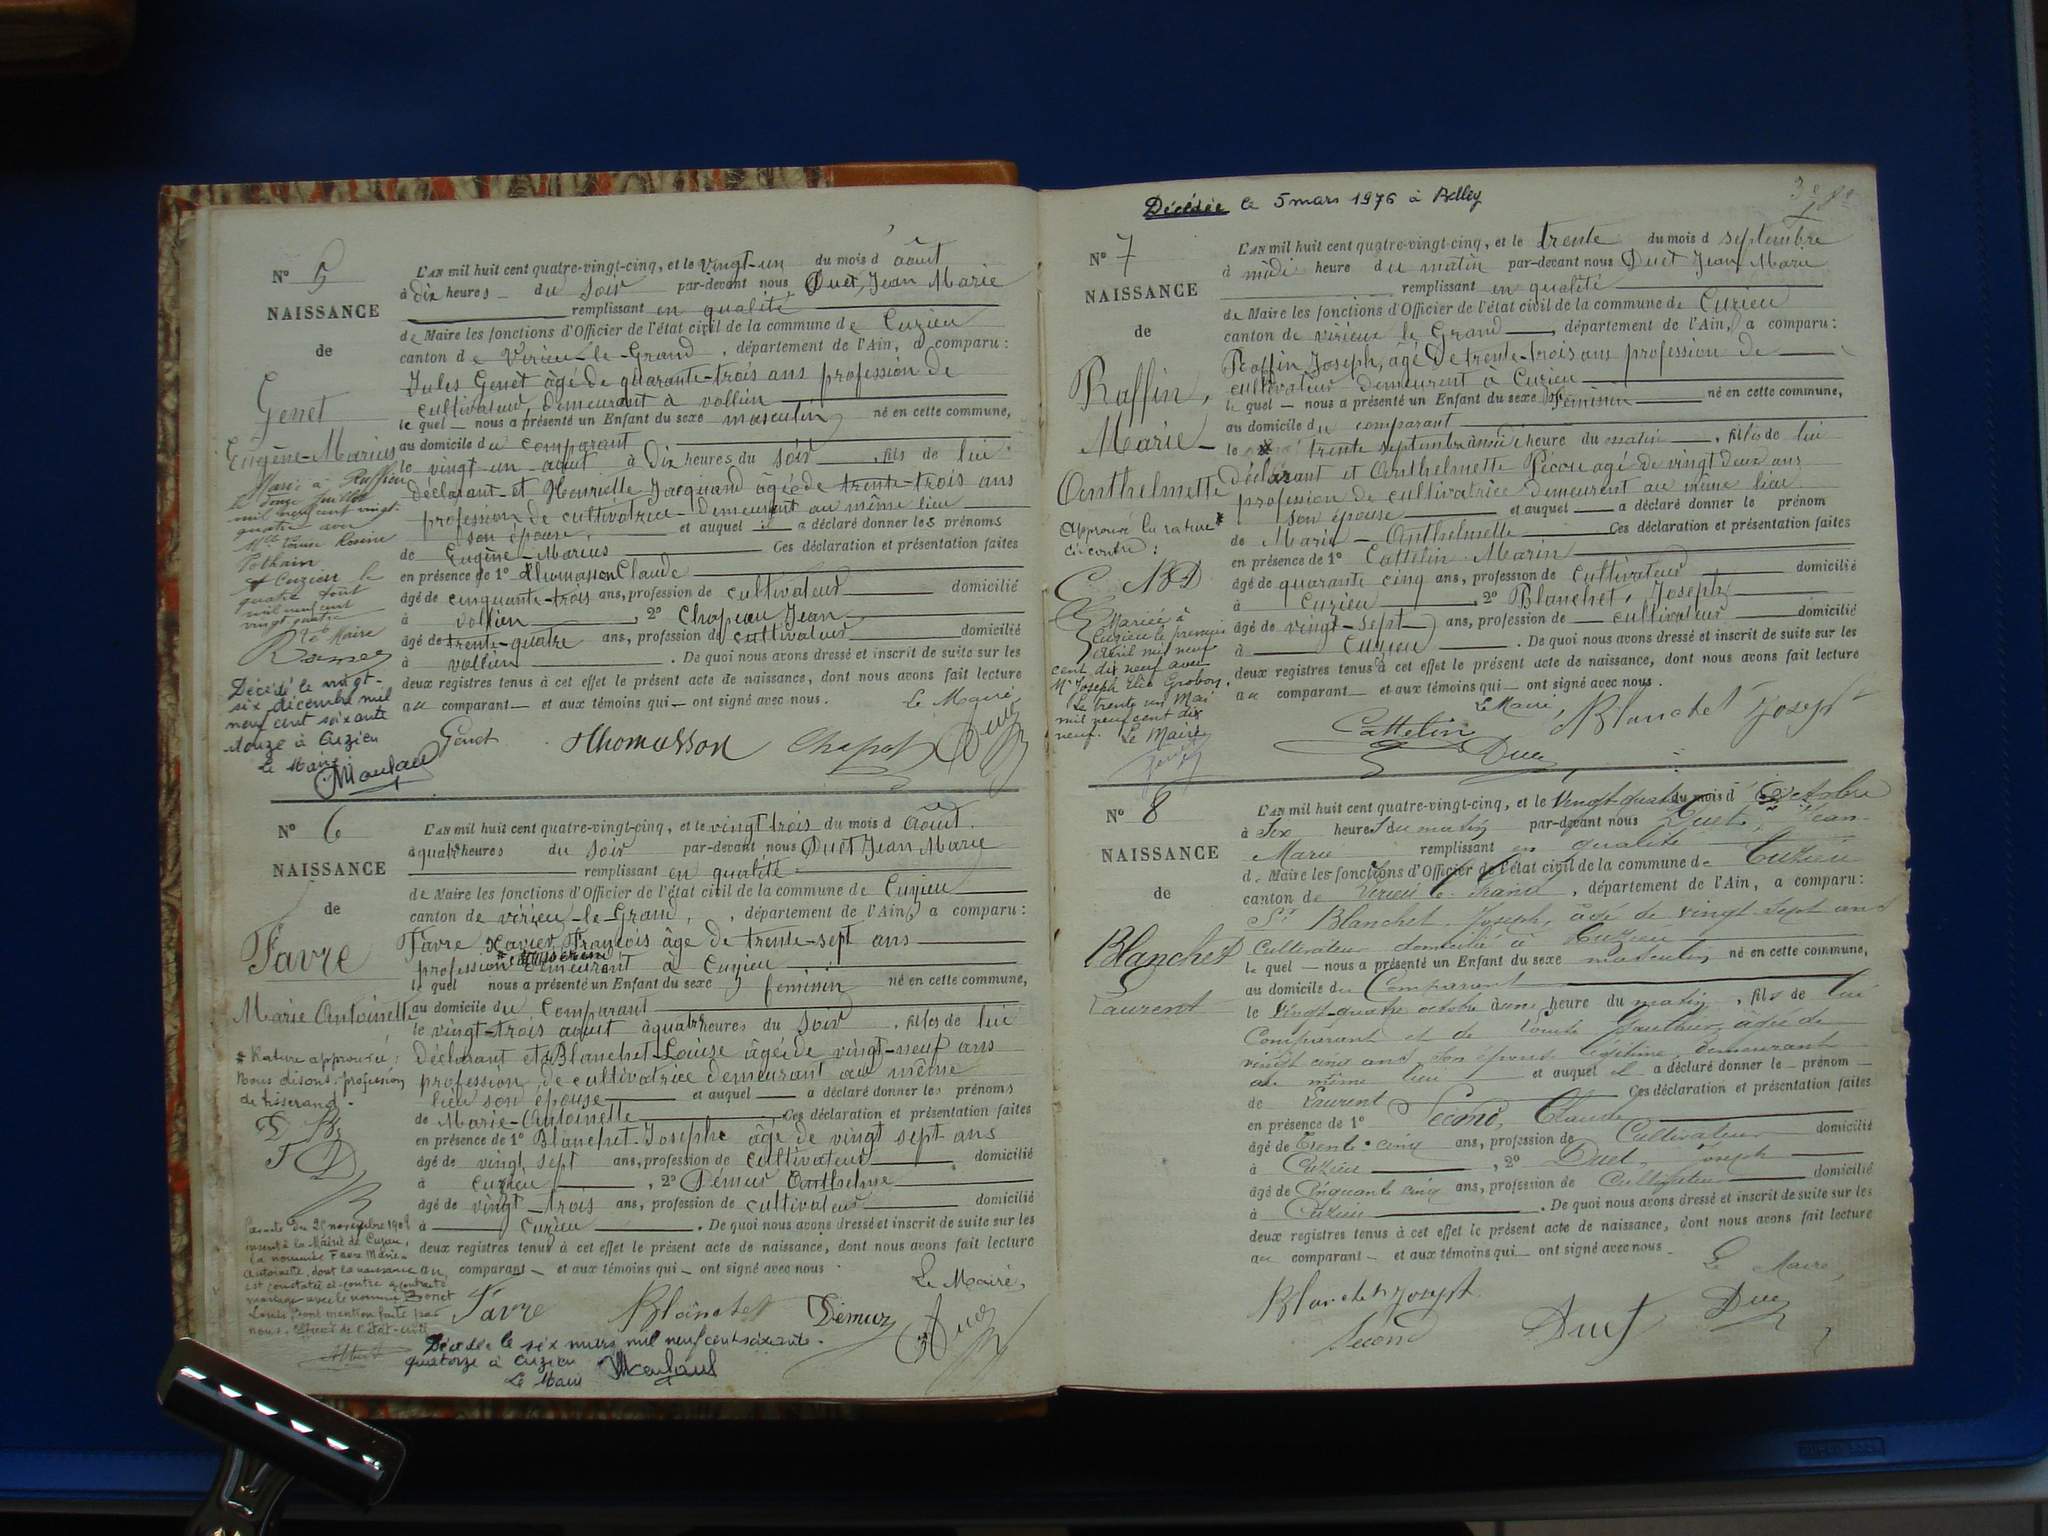 N° 5
NAISSANCE
de
Genet
Eugène-Marius
Marié à Ruffieu
le douze juillet
mil neuf cent vingt-
quatre avec
Mlle Louise Rosine
Cuzieu le
quatre août
mil neuf cent
vingt quatre
Le Maire
Décédé le vingt-
six décembre mil
neuf cent soixante
douze à Cuzieu
Le Maire
L'AN mil huit cent quatre-vingt-cinq, et le vingt-un du mois d août
à dix heures du soir par-devant nous Duet, Jean Marie
remplissant en qualité
de Maire les fonctions d'Officier de l'état civil de la commune de Cuzieu
canton de Virieu-le-Grand, département de l'Ain, a comparu:
Jules Genet âgé de quarante-trois ans profession de
cultivateur, demeurant à vollien
le quel — nous a présenté un Enfant du sexe masculin né en cette commune,
au domicile du comparant
le vingt-un août à dix heures du soir, fils de lui
déclarant et Henriette Jacquand âgée de trente-trois ans
profession de cultivatrice demeurant au même lieu
son épouse, et auquel — a déclaré donner les prénoms
de Eugène-Marius Ces déclaration et présentation faites
en présence de 1° Thomasson Claude
âgé de cinquante-trois ans, profession de cultivateur domicilié
à vollien, 2° Chapeau Jean
âgé de trente-quatre ans, profession de cultivateur domicilié
à vollien. De quoi nous avons dressé et inscrit de suite sur les
deux registres tenus à cet effet le présent acte de naissance, dont nous avons fait lecture
au comparant — et aux témoins qui — ont signé avec nous.
Le Maire
Genet Thomasson Duet
N° 6
NAISSANCE
de
Favre
Marie Antoinette
* Rature approuvée:
Nous disons: profession
de tisserand.
inscrit à la Mairie de Cuzieu,
la nommée Favre Marie-
Antoinette, dont la naissance
est constatée ci-contre a contracté
mariage avec le nommé
Louis, dont mention faite par
nous, Officier de l'état-civil
L'AN mil huit cent quatre-vingt-cinq, et le vingt trois du mois d Août
à quatre heures du soir par-devant nous Duet Jean Marie
remplissant en qualité
de Maire les fonctions d'Officier de l'état civil de la commune de Cuzieu
canton de virieu-le-Grand, département de l'Ain, a comparu:
Favre Xavier François âgé de trente-sept ans
profession demeurant à Cuzieu
le quel nous a présenté un Enfant du sexe féminin né en cette commune,
au domicile du Comparant
le vingt-trois août à quatre heures du soir, filles de lui
déclarant et de Blanchet Louise âgée de vingt-neuf ans
profession de cultivatrice demeurant au même
lieu son épouse et auquel — a déclaré donner les prénoms
de Marie-Antoinette Ces déclaration et présentation faites
en présence de 1° Blanchet Josephe âgé de vingt sept ans
âgé de vingt sept ans, profession de cultivateur domicilié
à Cuzieu, 2° Démur Anthelme
âgé de vingt-trois ans, profession de cultivateur domicilié
à Cuzieu. De quoi nous avons dressé et inscrit de suite sur les
deux registres tenus à cet effet le présent acte de naissance, dont nous avons fait lecture
au comparant — et aux témoins qui — ont signé avec nous.
Le Maire,
Favre Blanchet Démur Duet
Décédée le six mars mil neuf cent soixante-
quatorze à Cuzieu
Le Maire
Décédée le 5 mars 1976 à Belley
N° 7
NAISSANCE
de
Raffin,
Marie-
Anthelmette
Approuvé la rature
ci-contre:
Mariée à
Cuzieu le premier
avril mil neuf
cent dix neuf avec
Mr Joseph Elie Grobon.
Le trente un Mai
mil neuf cent dix
neuf. Le Maire
L'AN mil huit cent quatre-vingt-cinq, et le trente du mois d septembre
à midi heure du matin par-devant nous Duet Jean Marie
remplissant en qualité
de Maire les fonctions d'Officier de l'état civil de la commune de Cuzieu
canton de virieux le Grand, département de l'Ain, a comparu:
Raffin Joseph, âgé de trente-trois ans profession de
cultivateur demeurent à Cuzieu
le quel — nous a présenté un Enfant du sexe Féminin né en cette commune,
au domicile du comparant
le trente septembre à midi heure du matin, filles de lui
déclarant et Anthelmette Pécou agé de vingt deux ans
profession de cultivatrice demeurent au même lieu
son épouse et auquel — a déclaré donner le prénom
de Marie-Anthelmette Ces déclaration et présentation faites
en présence de 1° Cattelin Marin
âgé de quarante cinq ans, profession de cultivateur domicilié
à Cuzieu, 2° Blanchet, Joseph
âgé de vingt-sept ans, profession de cultivateur domicilié
à Cuzieu. De quoi nous avons dressé et inscrit de suite sur les
deux registres tenus à cet effet le présent acte de naissance, dont nous avons fait lecture
au comparant — et aux témoins qui — ont signé avec nous.
Le Maire,
Cattelin Duet Blanchet Joseph
N° 8
NAISSANCE
de
Blanchet
Laurent
L'AN mil huit cent quatre-vingt-cinq, et le vingt-quatre du mois d'Octobre
à Six heures du matin par-devant nous Duet, Jean-
Marie remplissant en qualité
de Maire les fonctions d'Officier de l'état civil de la commune de Cuzieu
canton de Virieu le Grand, département de l'Ain, a comparu:
Sr Blanchet Joseph, âgé de vingt-sept ans
Cultivateur domicilié à Cuzieu
le quel — nous a présenté un Enfant du sexe masculin né en cette commune,
au domicile du Comparant
le vingt-quatre octobre à une heure du matin, fils de lui
Comparant et de Louise Gauthier, âgée de
vingt cinq ans, son épouse légitime, demeurant
au même lieu et auquel il a déclaré donner le prénom
de Laurent Ces déclaration et présentation faites
en présence de 1° Second, Claude
âgé de Trente-cinq ans, profession de Cultivateur domicilié
à Cuzieu, 2° Duet, Joseph
âgé de Cinquante cinq ans, profession de Cultivateur domicilié
à Cuzieu. De quoi nous avons dressé et inscrit de suite sur les
deux registres tenus à cet effet le présent acte de naissance, dont nous avons fait lecture
au comparant — et aux témoins qui — ont signé avec nous.
Le Maire,
Blanchet Joseph
Second Duet Duet